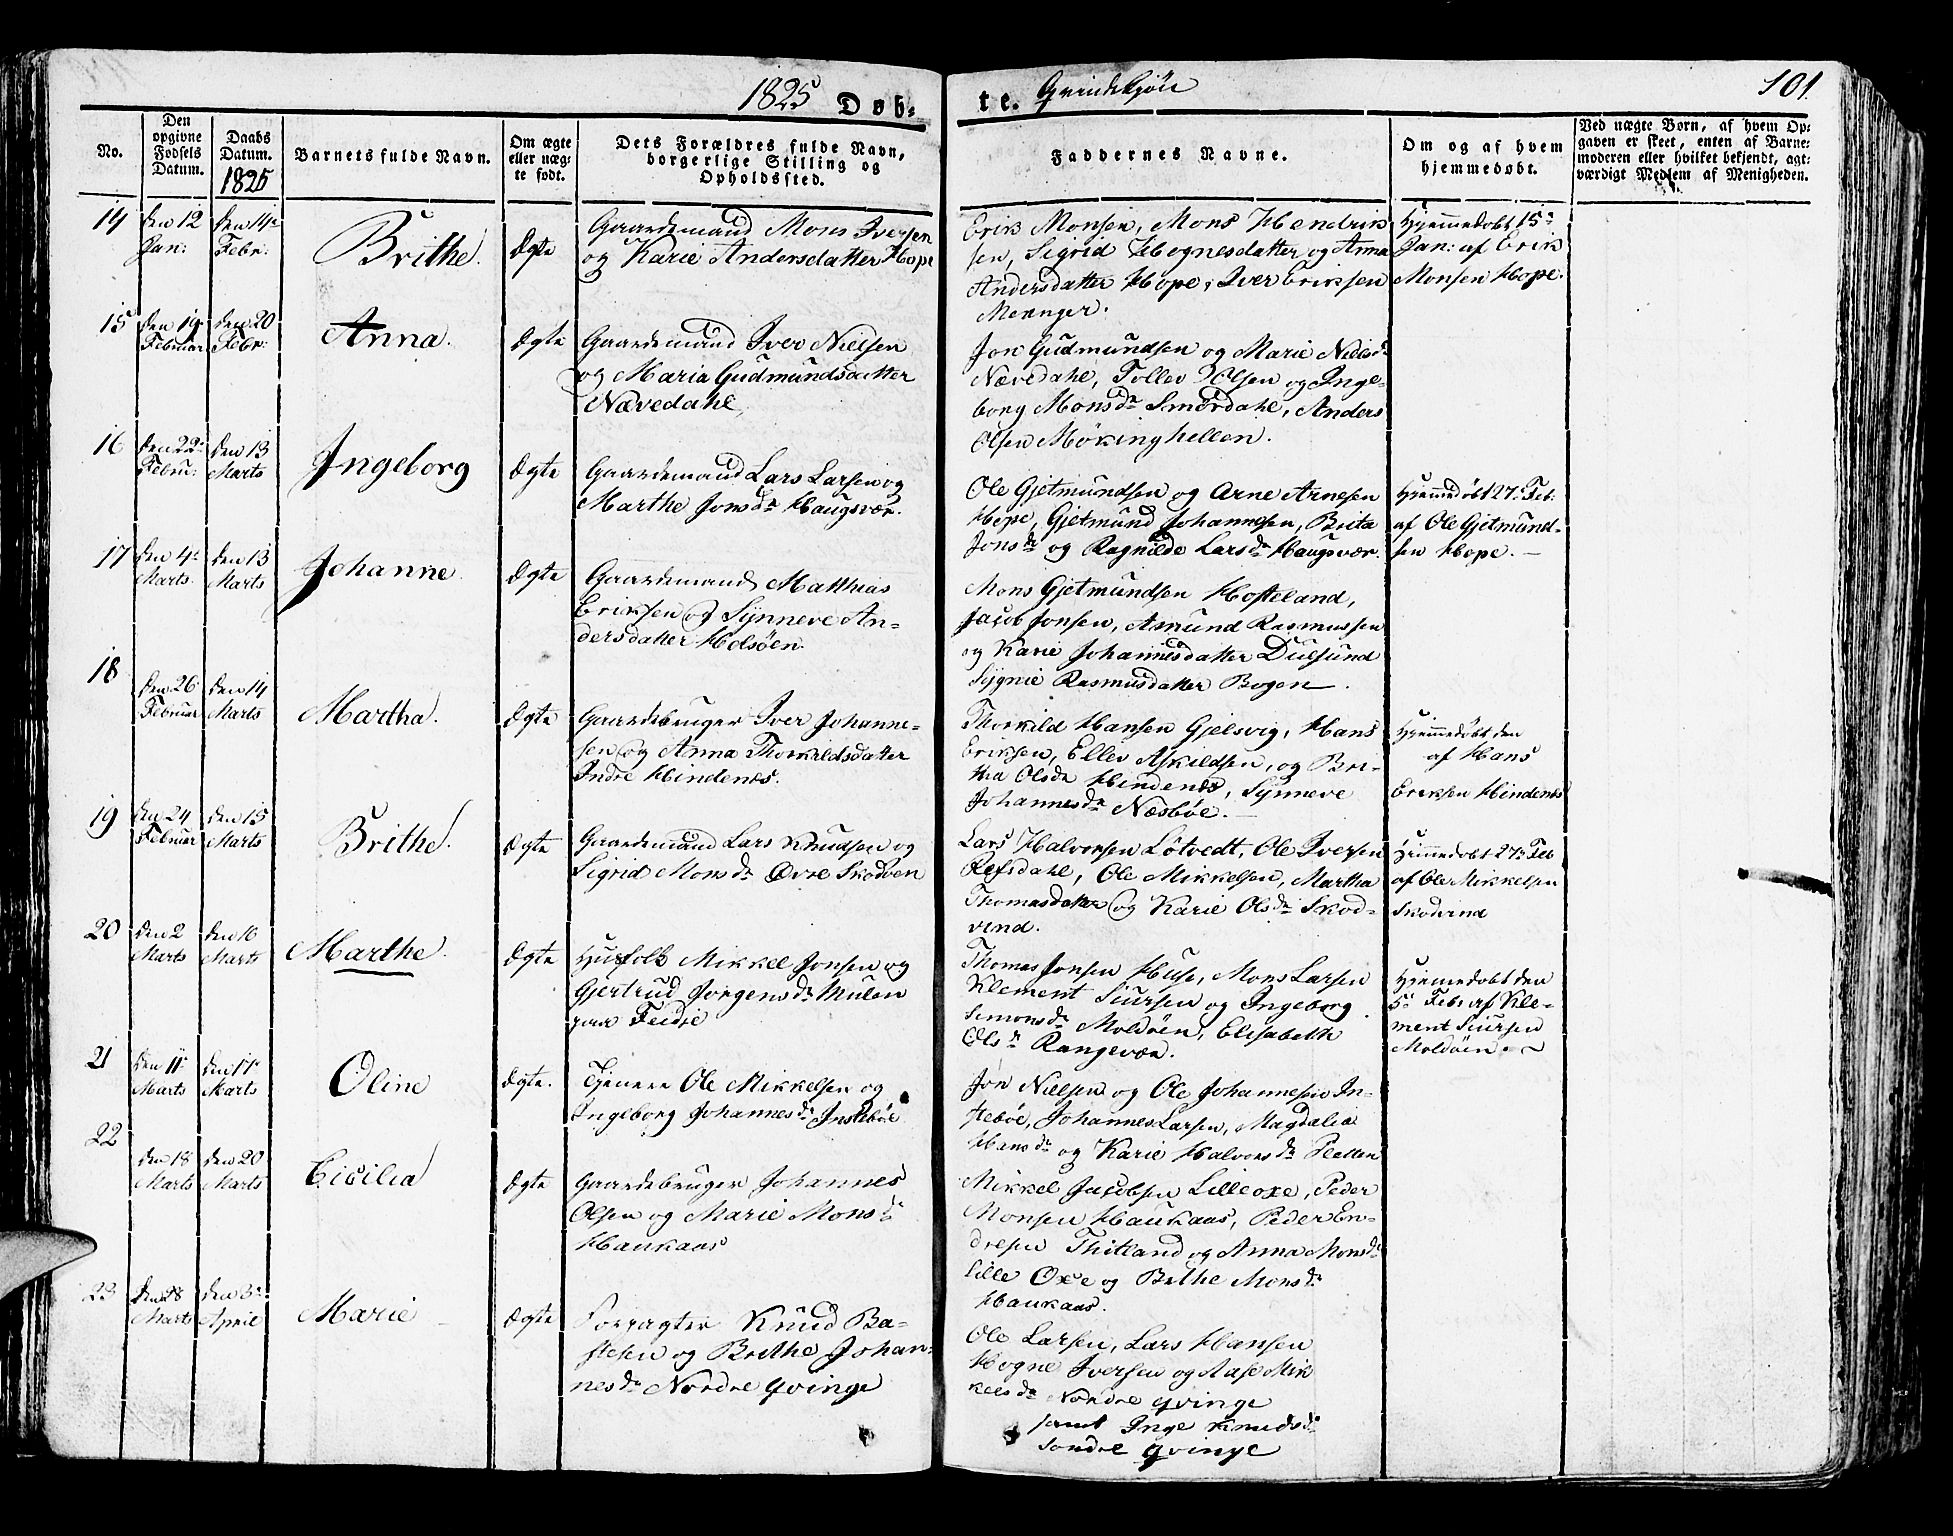 1825 Døb-
te. Qvindekjön
101.
No.
Den opgivne Fødsels Datum.
Daabs Datum. 1825
Barnets fulde Navn.
Om ægte eller uæg- te født.
Dets Forældres fulde Navn, borgerlige Stilling og Opholdssted.
Faddernes Navne.
Om og af hvem hjemmedøbt.
Ved uægte Børn, af hvem Op- gaven er skeet, enten af Barne- moderen eller hvilket bekjendt, agt- værdigt Medlem af Menigheden.
14
den 12 Jan:
den 14de Febr:
Brithe.
Ægte
Gaardemand Mons Iversen
og Karie Andersdatter Hope
Erik Monsen, Mons Hendrik
sen, Sigrid Hognesdatter og Anna
Andersdatter Hope, Iver Eriksen
Mennger.
Hjemmedøbt 15de
Jan: af Erik
Monsen Hope.
15
den 19 Februar
den 20 Febr:
Anna.
Ægte
Gaardemand Iver Nielsen
og Maria Gudmundsdatter
Nævedahl
Jon Gudmundsen og Marie Nielsd.
Nævedahl, Tollev Olsen og Inge-
borg Monsdr Smørdahl, Anders
Olsen Mökinghellen.
16
den 22de Febru:
den 13 Marts
Ingeborg
Ægte
Gaardemand Lars Larsen og
Marthe Jonsdr Haugsvær.
Ole Gjetmundsen og Arne Arnesen
Hope, Gjetmund Johannesen, Brita
Jonsdr og Ragnilde Larsdr Haugsvær.
Hjemmedøbt 27de Feb.
af Ole Gjetmund-
sen Hope. —
17
den 4de Marts
den 13 Marts
Johanne
Ægte
Gaardemand Matthias
Eriksen og Synneve An-
dersdatter Helsöen.
Mons Gjetmundsen Hosteland,
Jacob Jonsen, Amund Rasmussen
og Karie Johannesdatter Duesund
Sygnie Rasmusdatter Bogen.
18
den 26 Februar
den 14 Marts
Martha.
Ægte
Gaardebruger Iver Johanne-
sen og Anna Thorkildsdatter
Indre Hindenæs.
Thorkild Hansen Gjelsvig, Hans
Eriksen, Ellev Askildsen, og Bri-
tha Olsdr Hindenes, Synneve
Johannesdr Næsböe. —
Hjemmedøbt den
af Hans
Eriksen Hindenæs
19
den 24 Februar
den 15 Marts
Brithe.
Ægte
Gaardemand Lars Knudsen og
Sigrid Monsdr Övre Skodven
Lars Halvorsen Lötvedt, Ole Iversen
Refsdahl, Ole Mikkelsen, Martha
Thomasdatter og Karie Olsdr Skod-
vend.
Hjemmedøbt 27de Feb
af Ole Mikkelsen
Skodvend
20
den 2 Marts
den 16 Marts
Marthe.
Ægte
Husfolk Mikkel Jonsen og
Gjertrud Jörgensdr Mulen
paa Feidie
Thomas Jonsen Huse, Mons Larsen
Klement Siursen og Ingeborg
Simonsdr Moldöen, Elisabeth
Olsdr Rangevær.
Hjemmedøbt den
5te Feb: af Kle-
ment Siursen
Moldöen
21
den 11te Marts
den 17de Marts
Oline
Ægte.
Tjenere Ole Mikkelsen og
Ingeborg Johannesdr Instebøe
Jon Nielsen og Ole Johannesen In-
stebøe, Johannes Larsen, Magdalia
Hansdr og Karie Halvorsdr Platten
22
den 18 Marts
den 20 Marts
Cicilia
Ægte
Gaardebruger Johannes
Olsen og Marie Monsdr
Haukaas
Mikkel Jacobsen Lilleoxe, Peder
Monsen Haukaas, Peder En-
dresen Thitland og Anna Monsdr
Lille Oxe og Brithe Monsdr
Haukaas.
23
den 18 Marts
den 3de April
Marie
Ægte
Forpagter Knud Ba-
stesen og Brithe Johan-
nesdr Nordre Qvinge
Ole Larsen, Lars Hansen
Hogne Iversen og Aase Mik
kelsdr Nordre Qvinge
samt Inge Knudsdr
Söndre Qvinge